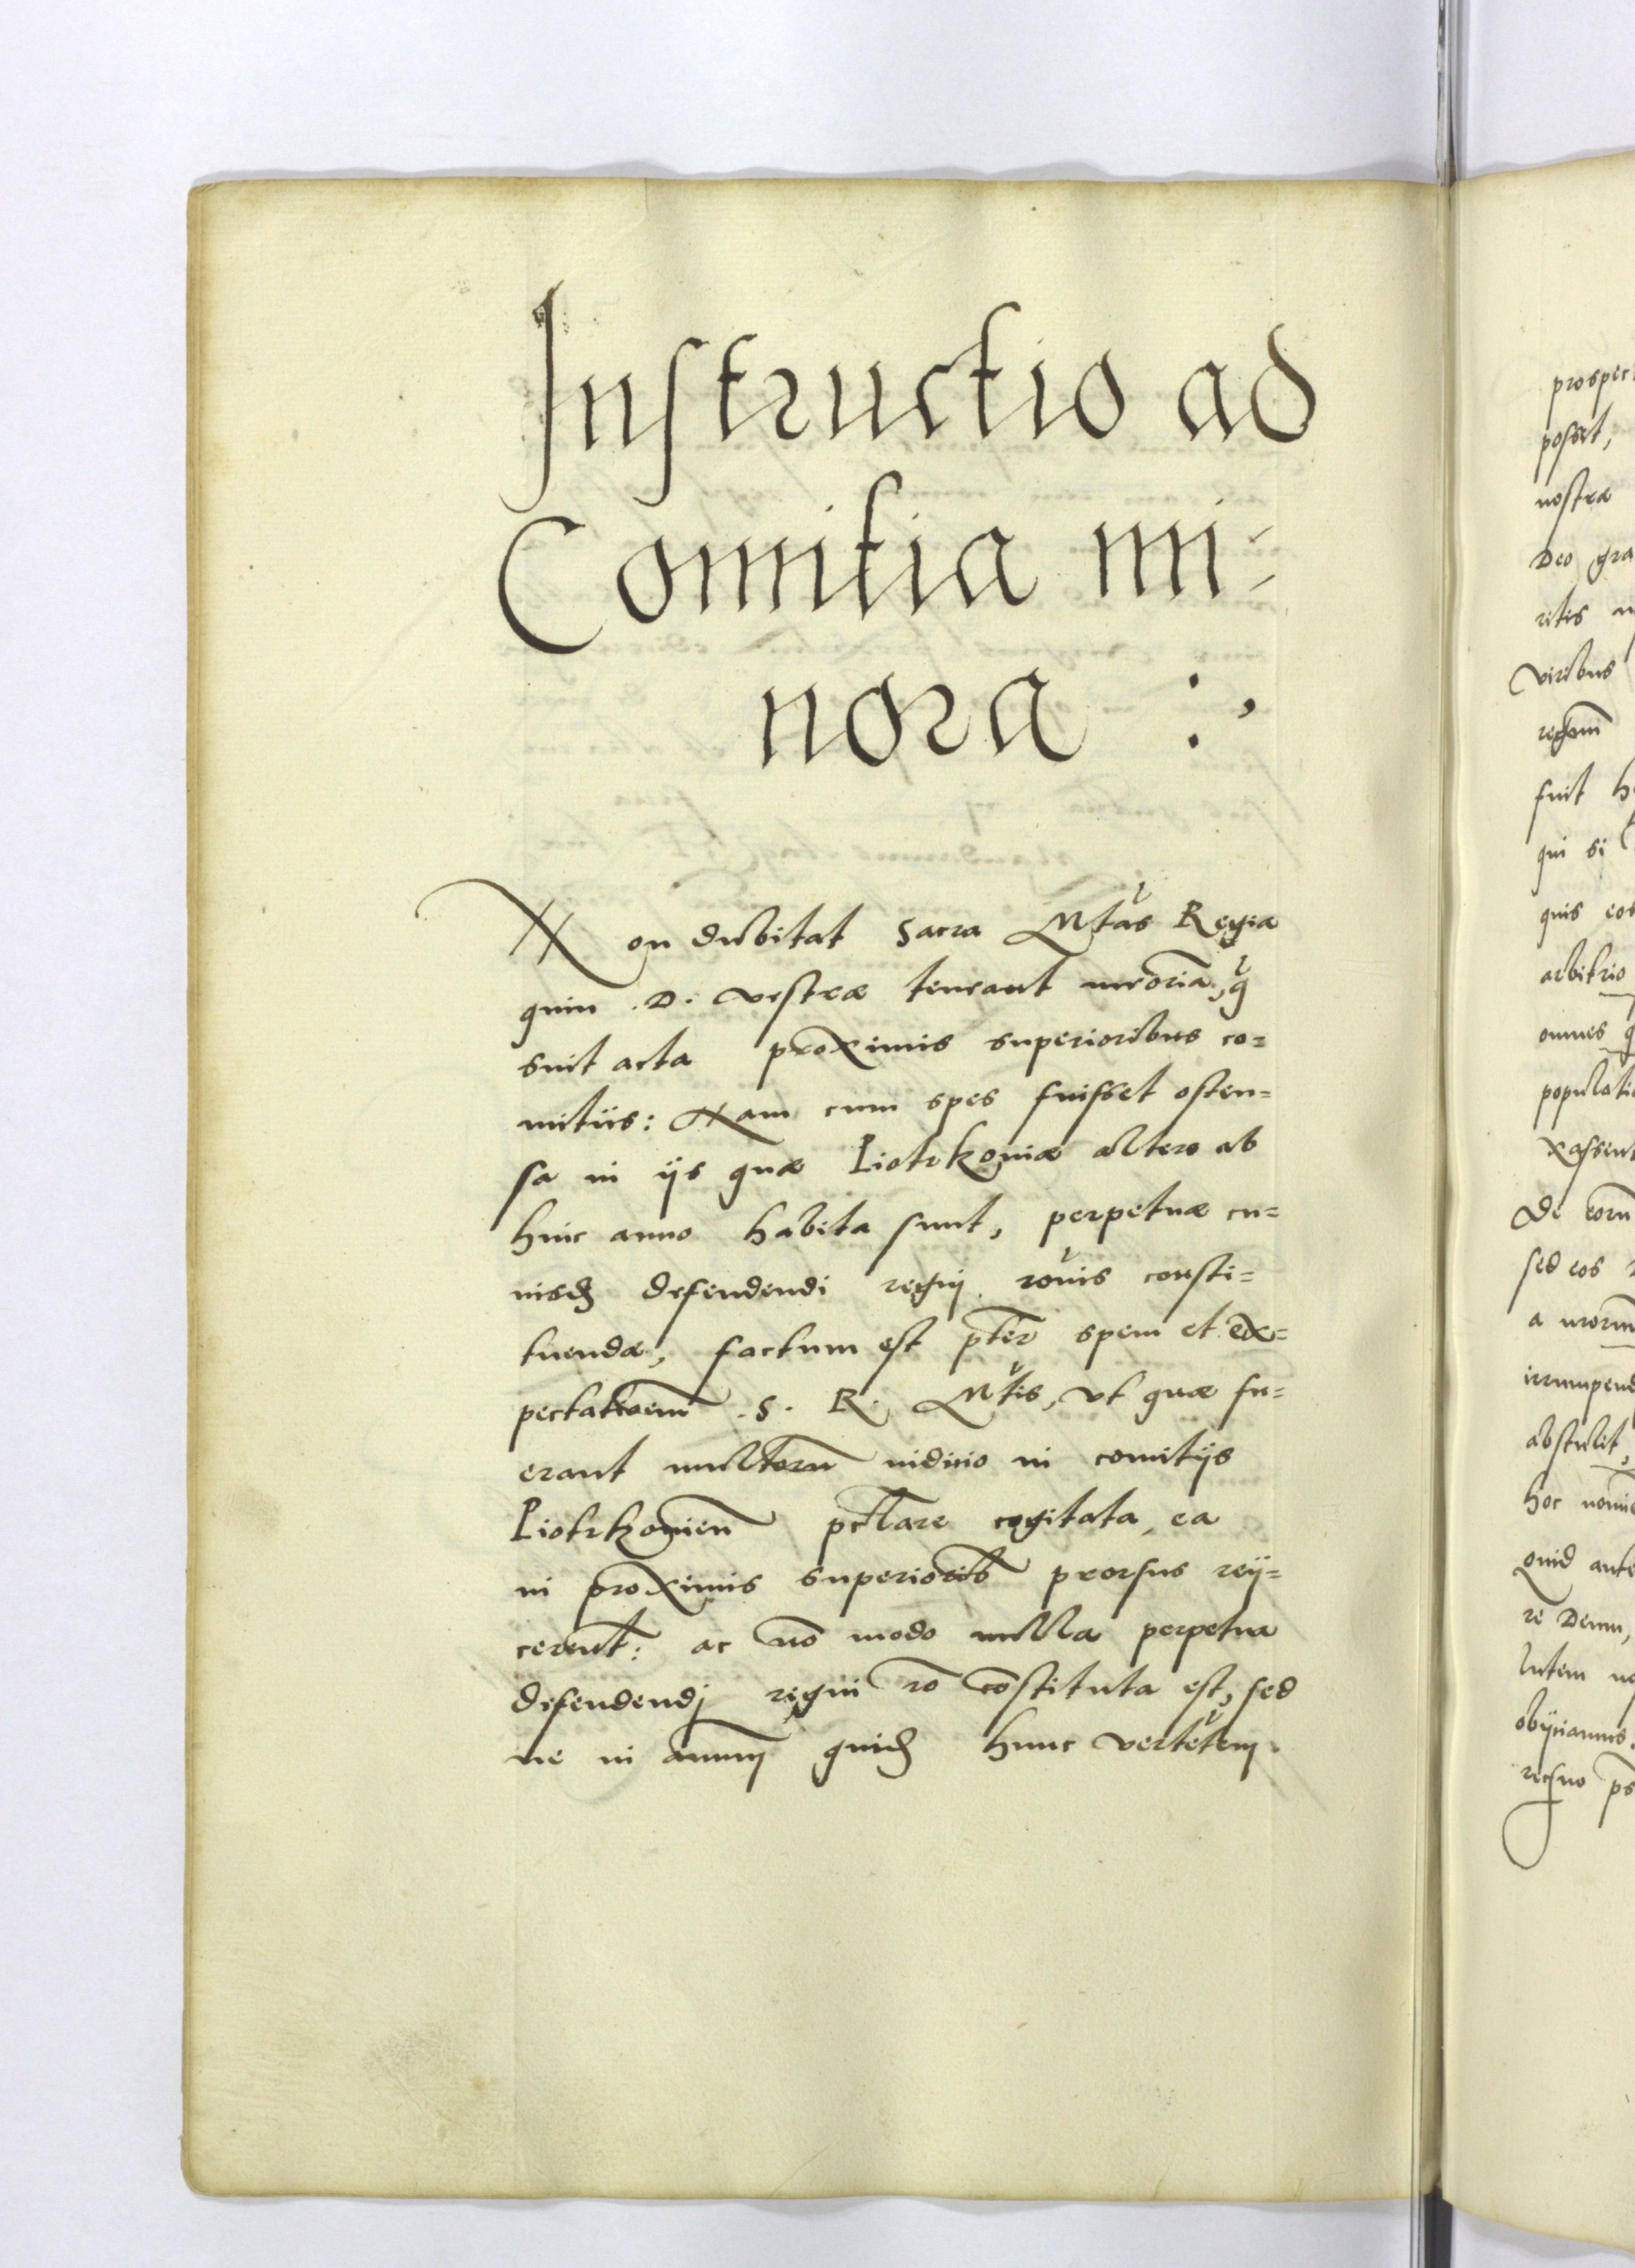 Instructio ad
Comitia mi-
nora :,
Non dubitat Sacra Mtas Regia
quin .D. vestræ teneant memoria, q
sint acta proximis superioribus co=
mitiis: Nam cum spes fuisset osten=
sa in ijs quæ Piotrkoviæ altero ab
hinc anno habita sunt, perpetuæ cu=
iusd defendendi regnj rōnis consti=
tuendæ, factum est pter spem et ex=
pectationem .S. R. Mtis, vt quæ fu=
erant multoru iudicio in comitijs
Piotrkovien pclare cogitata, ea
in proximis superiorib prorsus reij=
cerent: ac nō modo nulla perpetua
defendendj regni rō cōstituta est, sed
ne in annum quid hunc vertētem.
prospect
posset,
nostræ
Deo gra
ritis
viribus
regnum
fuit h
qui si
quis eos
arbitrio
omnes q
populatio
xassent
De eoru
sed eos
a
irrumpend
abstulit,
hoc nomi
Quid ante
re Deum,
lutem
obijciamus.
regno ps